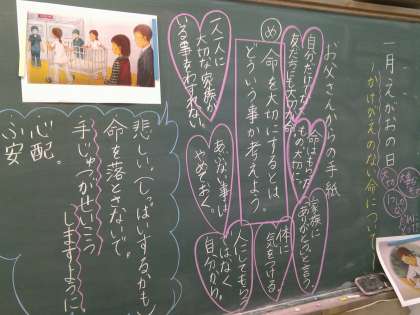 一月えがおの日
かけがえのない命について
大切
お父さんからの手紙
自分だけでなく
友だちにも大切な命。
命はもらった
もの。大切に
家族に
ありがとうと言う。
め
命を大切にするとは
どういう事か考えよう。
体に
気をつける。
一人一人に
大切な家族が
いる事をわすれない。
あぶない事は
やめておく。
人にしてもらう
ではなく
自分から。
悲しい。(しっぱいするかも)
命を落とさないで。
手じゅつがせいこう
しますように
心配。
ふ安